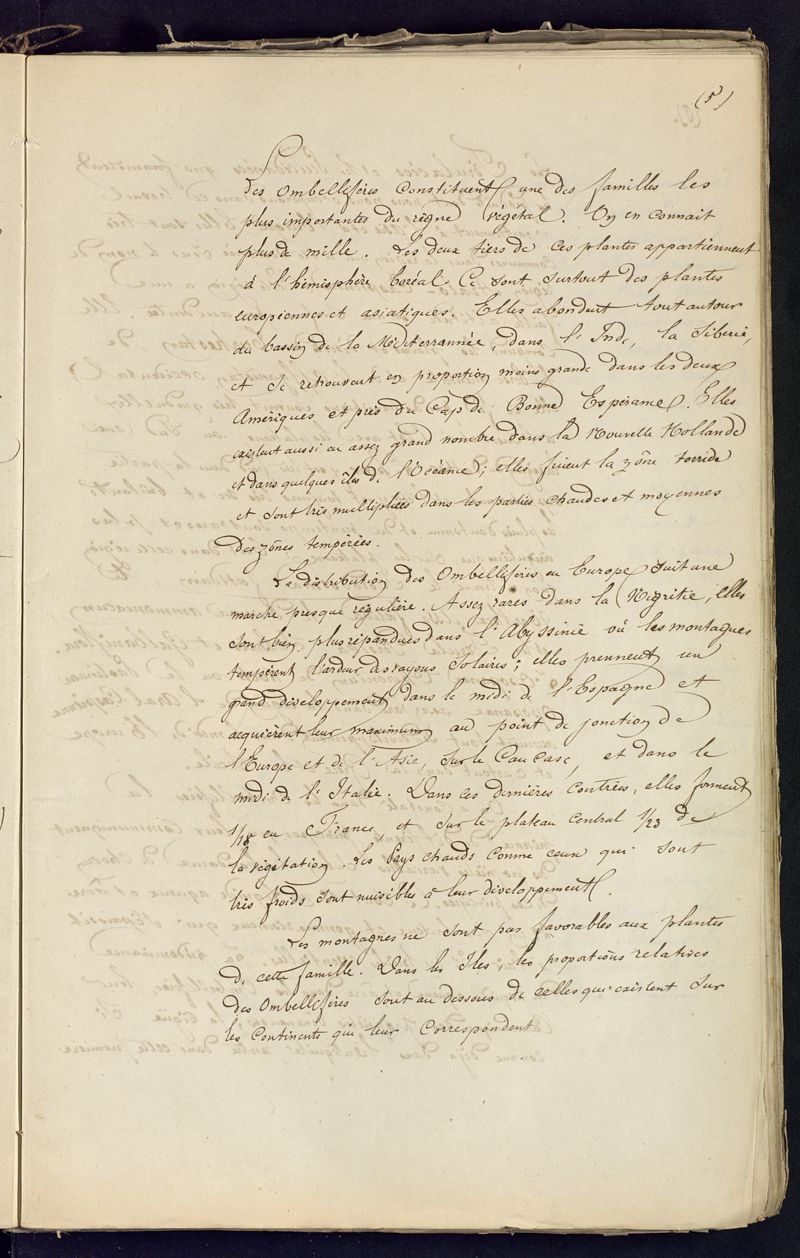 (5)
Les Ombellifères constituent une des familles les
plus importantes du règne végétal. On en connait
plus de mille. Les deux tiers de ces plantes appartiennent
à l'hémisphère boréal. Ce sont surtout des plantes
européennes et asiatiques. Elles abondent tout autour
du bassin de la Méditerrannée, dans l'Inde, la Sibérie,
et se retrouvent en proportion moins grande dans les deux
Amériques et près du Cap de Bonne Espérance. Elles
existent aussi en assez grand nombre dans la Nouvelle Hollande
et dans quelques îles de l'Océanie; elles fuient la zône torride
et sont très multipliées dans les parties chaudes et moyennes
des zônes tempérées.
La distribution des Ombellifères en Europe suit une
marche presque régulière. Assez rares dans la Nigritie, elles
sont bien plus répandues dans l'Abyssinie où les montagnes
tempèrent l'ardeur des rayons solaires; elles prennent un
grand développement dans le midi de l'Espagne et
acquièrent leur maximum au point de jonction de
l'Europe et de l'Asie, sur le Caucase, et dans le
midi de l'Italie. Dans ces dernières contrées, elles forment
1/18 en France, et sur le plateau central 1/23 de
la végétation. Les Pays chauds comme ceux qui sont
très froids sont nuisibles à leur développement.
Les montagnes ne sont pas favorables aux plantes
de cette famille. Dans les Iles, les proportions relatives
des Ombellifères sont au dessous de celles qui existent sur
les Continents qui leur correspondent.